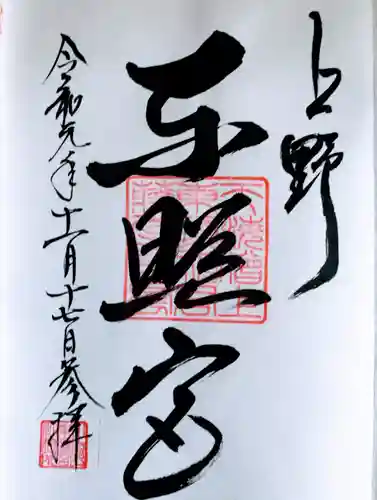 上野
東照宮
令和元年十一月十七日参拝